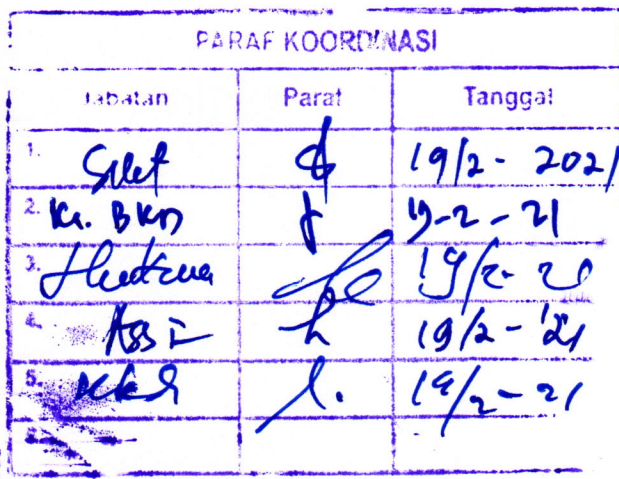 PARAF KOORDINASI
Jabatan Paraf Tanggal
1. 19/2 - 2021
2. Ka. BKD 19-2-21
3. 19/2-21
4. Ass I 19/2-'21
5. 19/2-21
6.